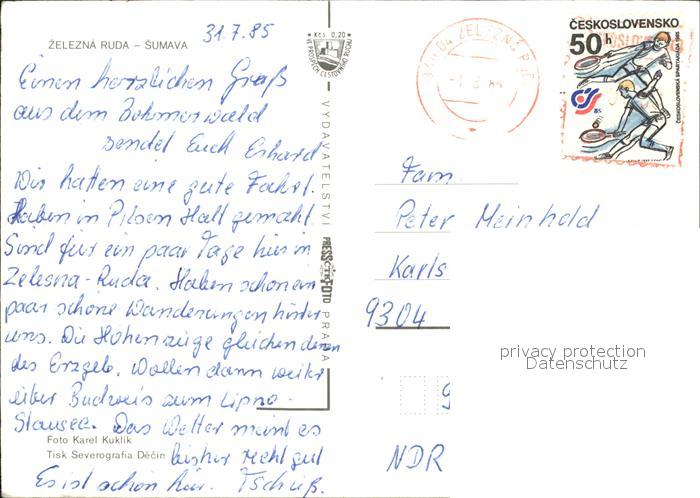 31.7.85
ŽELEZNÁ RUDA – ŠUMAVA
Einen herzlichen Gruß
aus dem Böhmerwald
sendet Euch Erhard
Wir hatten eine gute Fahrt.
Haben in Pilsen Halt gemacht.
Sind für ein paar Tage hier in
Zelesna-Ruda. Haben schon ein
paar schöne Wanderungen hinter
uns. Die Höhenzüge gleichen denen
des Erzgeb. Wollen dann weiter
über Budweis zum Lipno-
Stausee. Das Wetter meint es
Foto Karel Kuklík
Tisk Severografia Děčín
bisher recht gut
Es ist schön hier. Tschüß.
Kčs 0,20
VE PROSPĚCH CESTOVNÍHO RUCHU
VYDAVATELSTVÍ
PRESSFOTO
PRAHA
ŽELEZNÁ RUDA
ČESKOSLOVENSKO
50h
ČESKOSLOVENSKÁ SPARTAKIÁDA 1985
85
Fam
Peter Meinhold
Karls
9304
9
NDR
privacy protection
Datenschutz